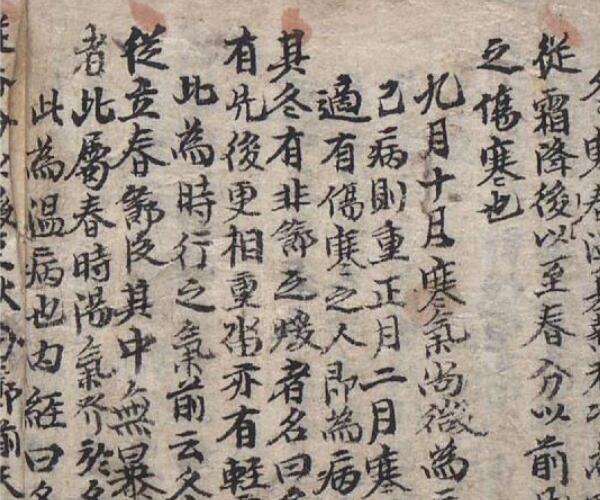 從霜降後以至春分以前
之傷寒也
九月十月寒氣尚微為
已病則重正月二月寒
適有傷寒之人即為病
其冬有非節之煖者名曰
有先後更相重沓亦有輕
此為時行之氣前云冬
從立春節後其中無暴
者此屬春時陽氣發於冬
此為温病也内經曰冬